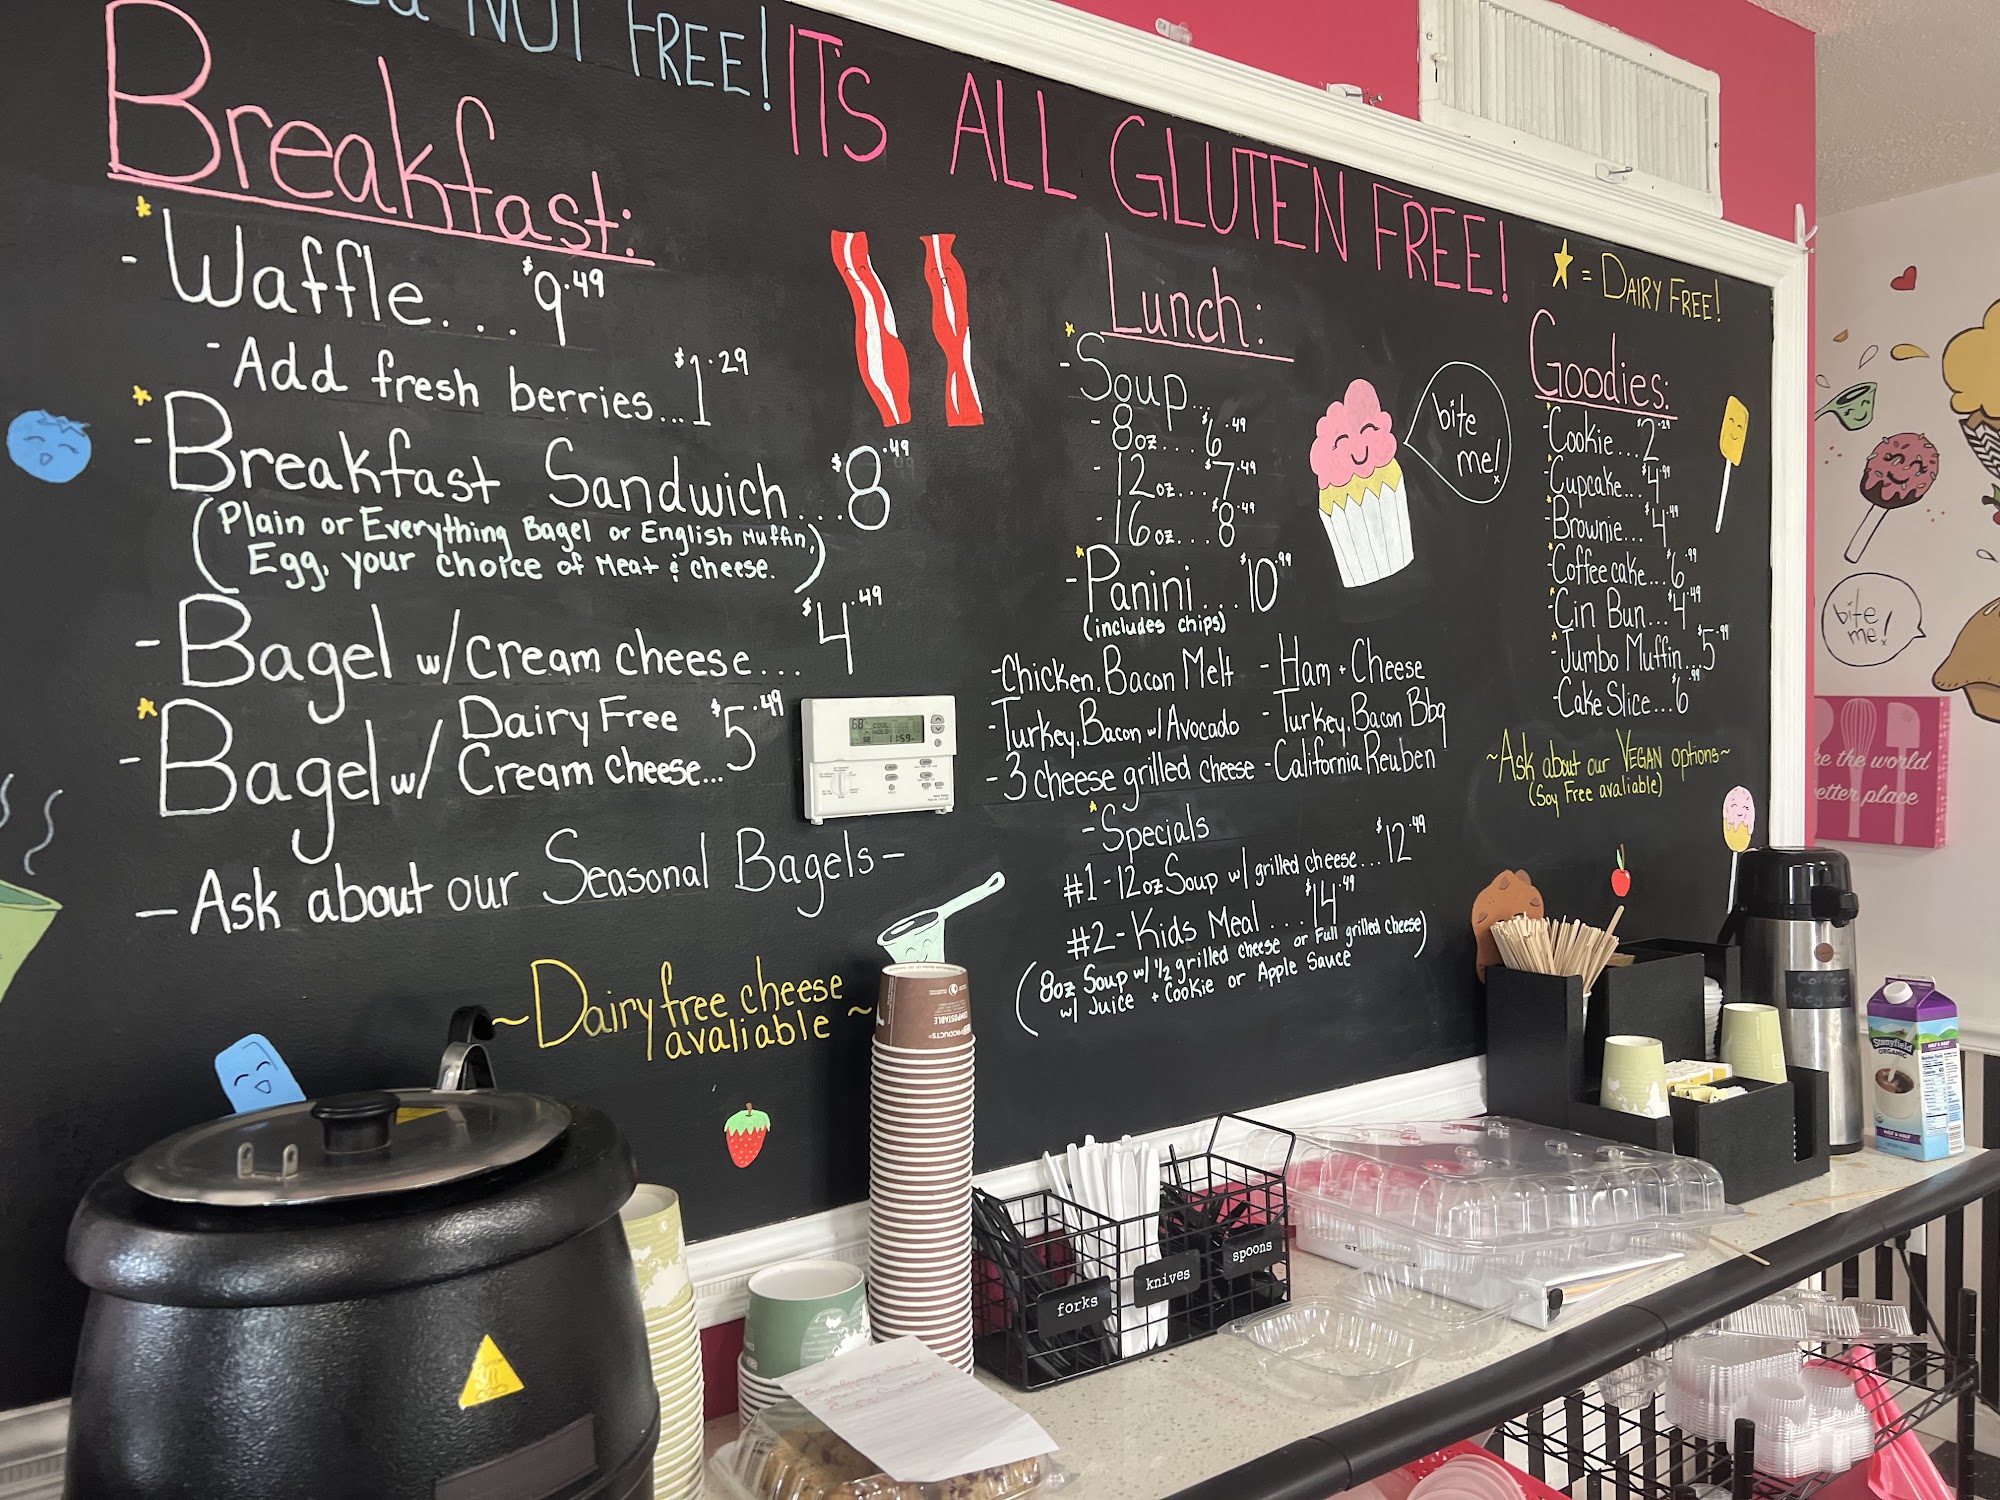 NOT FREE!
IT'S ALL GLUTEN FREE!
Breakfast:
- Waffle... $9.49
- Add fresh berries... $1.29
- Breakfast Sandwich... $8.49
(Plain or Everything Bagel or English Muffin,
Egg, your choice of Meat & cheese.)
- Bagel w/ cream cheese... $4.49
- Bagel w/ Dairy Free Cream cheese... $5.49
- Ask about our Seasonal Bagels -
~ Dairy free cheese
avaliable ~
Lunch:
- Soup...
- 8oz... $6.49
- 12oz... $7.49
- 16oz... $8.49
- Panini... $10.99
(includes chips)
- Chicken, Bacon Melt
- Turkey, Bacon w/ Avocado
- 3 cheese grilled cheese
- Ham + Cheese
- Turkey, Bacon Bbq
- California Reuben
- Specials
#1 - 12oz Soup w/ grilled cheese... $12.49
#2 - Kids Meal... $14.49
(8oz Soup w/ 1/2 grilled cheese or Full grilled cheese)
w/ Juice + Cookie or Apple Sauce
bite
me!
= DAIRY FREE!
Goodies:
- Cookie... $2.29
- Cupcake... $4.99
- Brownie... $4.49
- Coffee cake... $6.99
- Cin Bun... $4.49
- Jumbo Muffin... $5.99
- Cake Slice... $6.99
~ Ask about our VEGAN options ~
(Soy Free avaliable)
bite
me!
the world
better place
68°
COOL
HOLD
11:59
COMPOSTABLE
forks
knives
spoons
Coffee
Regular
Stonyfield
ORGANIC
HALF & HALF